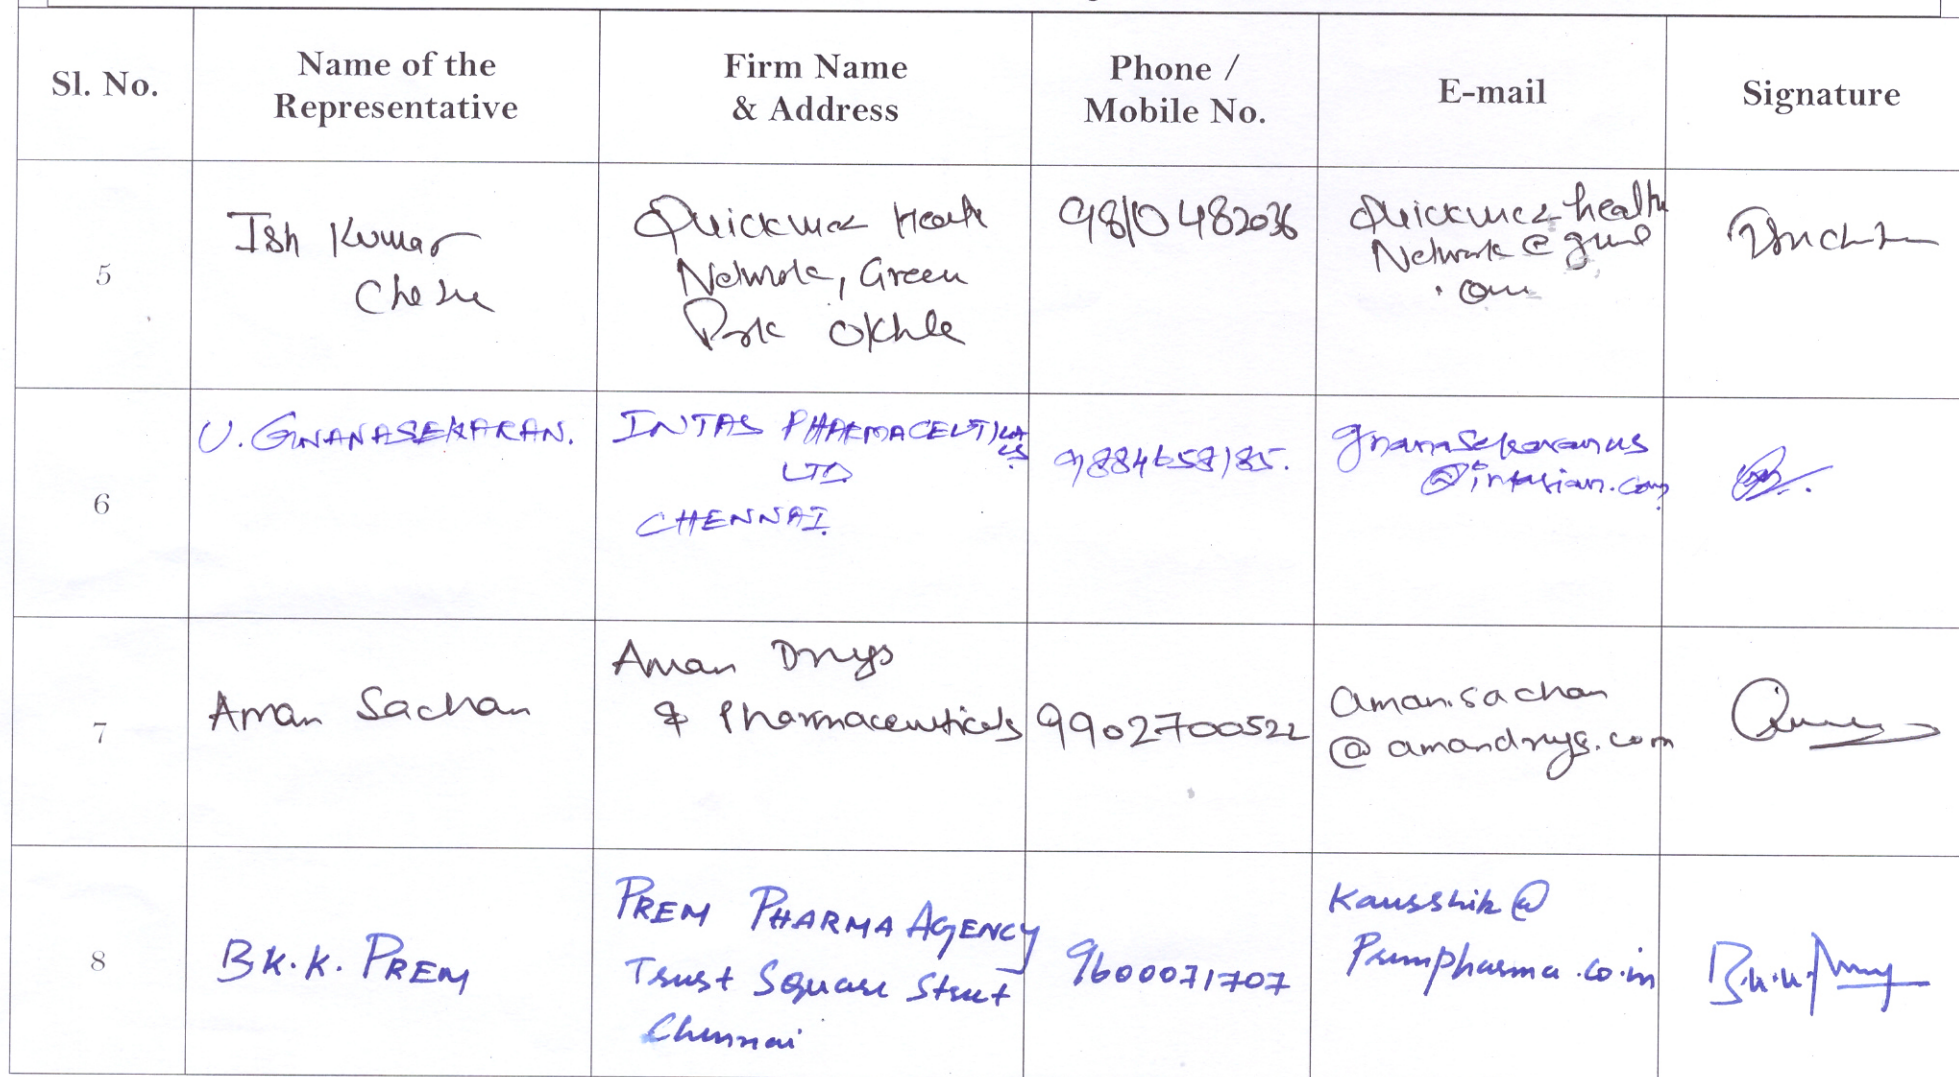 Sl. No.
Name of the
Representative
Firm Name
& Address
Phone /
Mobile No.
E-mail
Signature
5
Ish Kumar
Quickmed Health
Network, Green
Park Okhla
9810482036
Quickmed health
Network @ gmail
.com
6
U. GNANASEKARAN.
INTAS PHARMACEUTICALS
LTD
CHENNAI
9884658185.
gnanasekaranus
@intasian.com
7
Aman Sachan
Aman Drugs
& Pharmaceuticals
9902700522
aman.sachan
@amandrugs.com
8
B K.K. PREM
PREM PHARMA AGENCY
Trust Square Street
Chennai
9600071707
Kausshik@
Prempharma.co.in
B.K.K. Prem